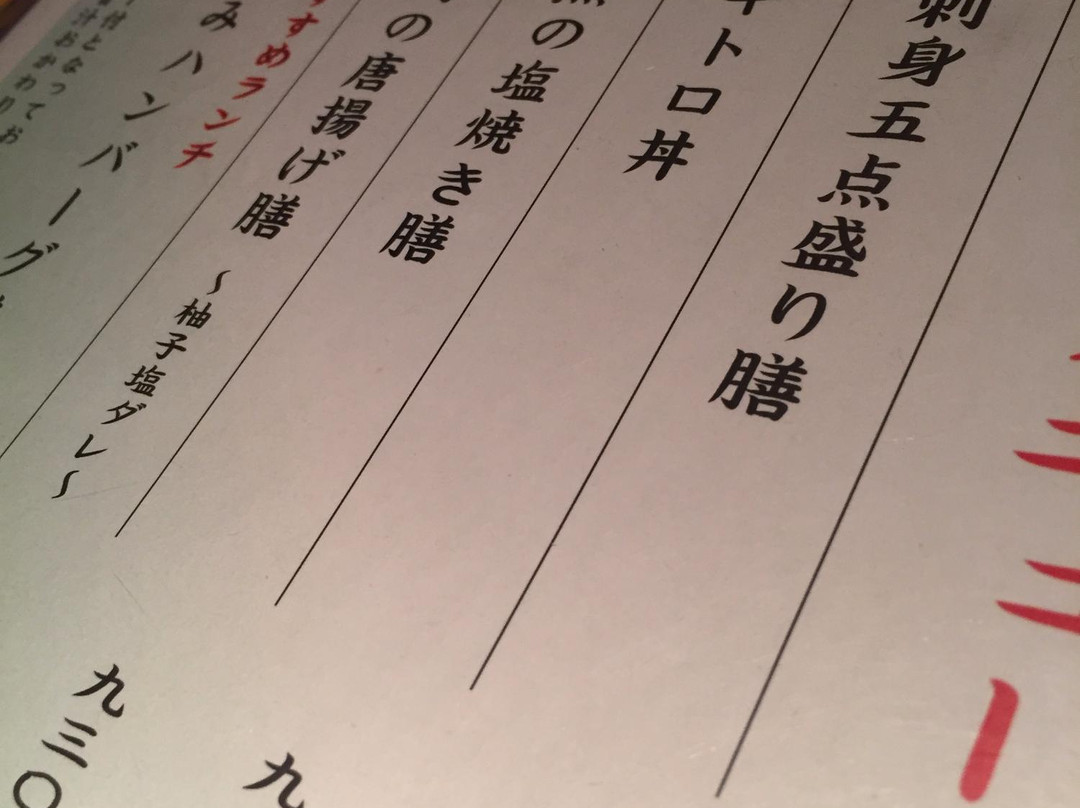 刺身五点盛り膳
トロ丼
の塩焼き膳 九
の唐揚げ膳 〜柚子塩ダレ〜 九三〇
すめランチ
みハンバーグ
付となって
汁おかわりお